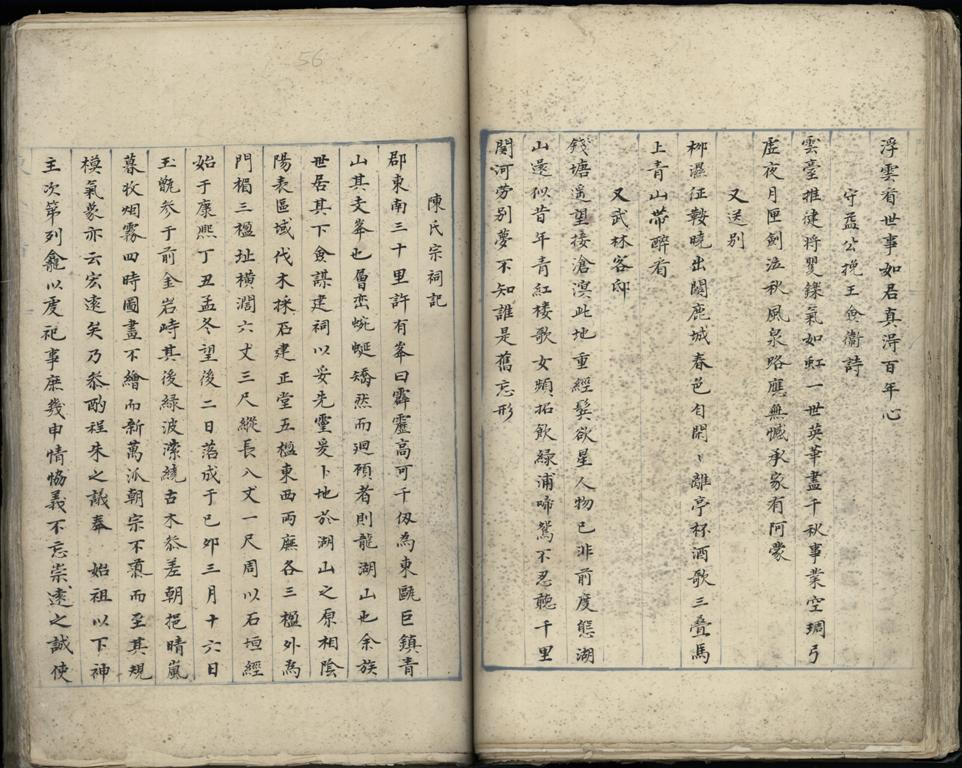 浮雲看世事如君真得百年心
守益公挽王僉衞詩
雲臺推健將矍鑠氣如虹一世英華盡千秋事業空琱弓
虛夜月匣劍泣秋風泉路應無憾承家有阿蒙
又送别
柳濕征鞍曉出關鹿城春色自閑〻離亭杯酒歌三疊馬
上青山帶醉看
又武林客邸
錢塘遥望接滄溟此地重經鬂欲星人物已非前度態湖
山還似昔年青紅楼歌女頻招飲緑浦啼鶯不忍聽千里
関河劳别夢不知誰是舊忘形
56
陳氏宗祠記
郡東南三十里許有峯曰霹靂高可千仭為東甌巨鎮青
山其支峯也層峦蜿蜒矯然而廻顧者則龍湖山也余族
世居其下僉謀建祠以妥先靈爰卜地於湖山之原相陰
陽表區域伐木採石建正堂五楹東西兩廡各三楹外為
門楬三楹址横濶六丈三尺縱長八丈一尺周以石垣經
始于康熙丁丑孟冬望後二日落成于己卯三月十六日
玉甑参于前金岩峙其後緑波瀠繞古木叅差朝挹晴嵐
暮牧烟霧四時圖畫不繪而新萬派朝宗不彚而至其規
模氣象亦云宏遠矣乃叅酌程朱之議奉　始祖以下神
主次第列龕以妥祀事庶幾申情恊義不忘崇遠之誠使